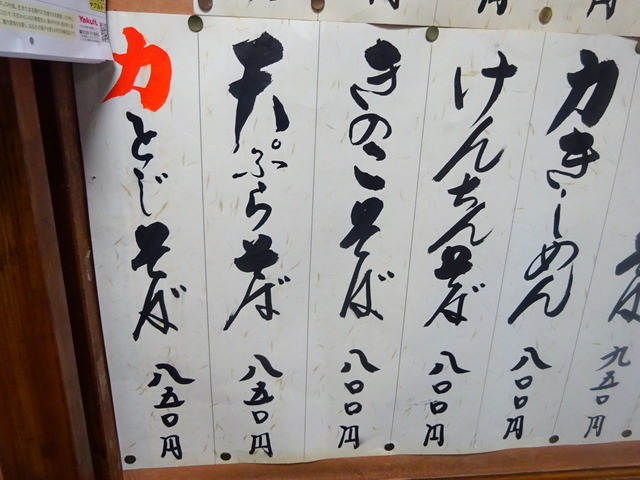 力きしめん
八〇〇円
けんちんそば
八〇〇円
きのこそば
八〇〇円
天ぷらそば
八五〇円
力とじそば
八五〇円
そば
九五〇円
円
Yakult